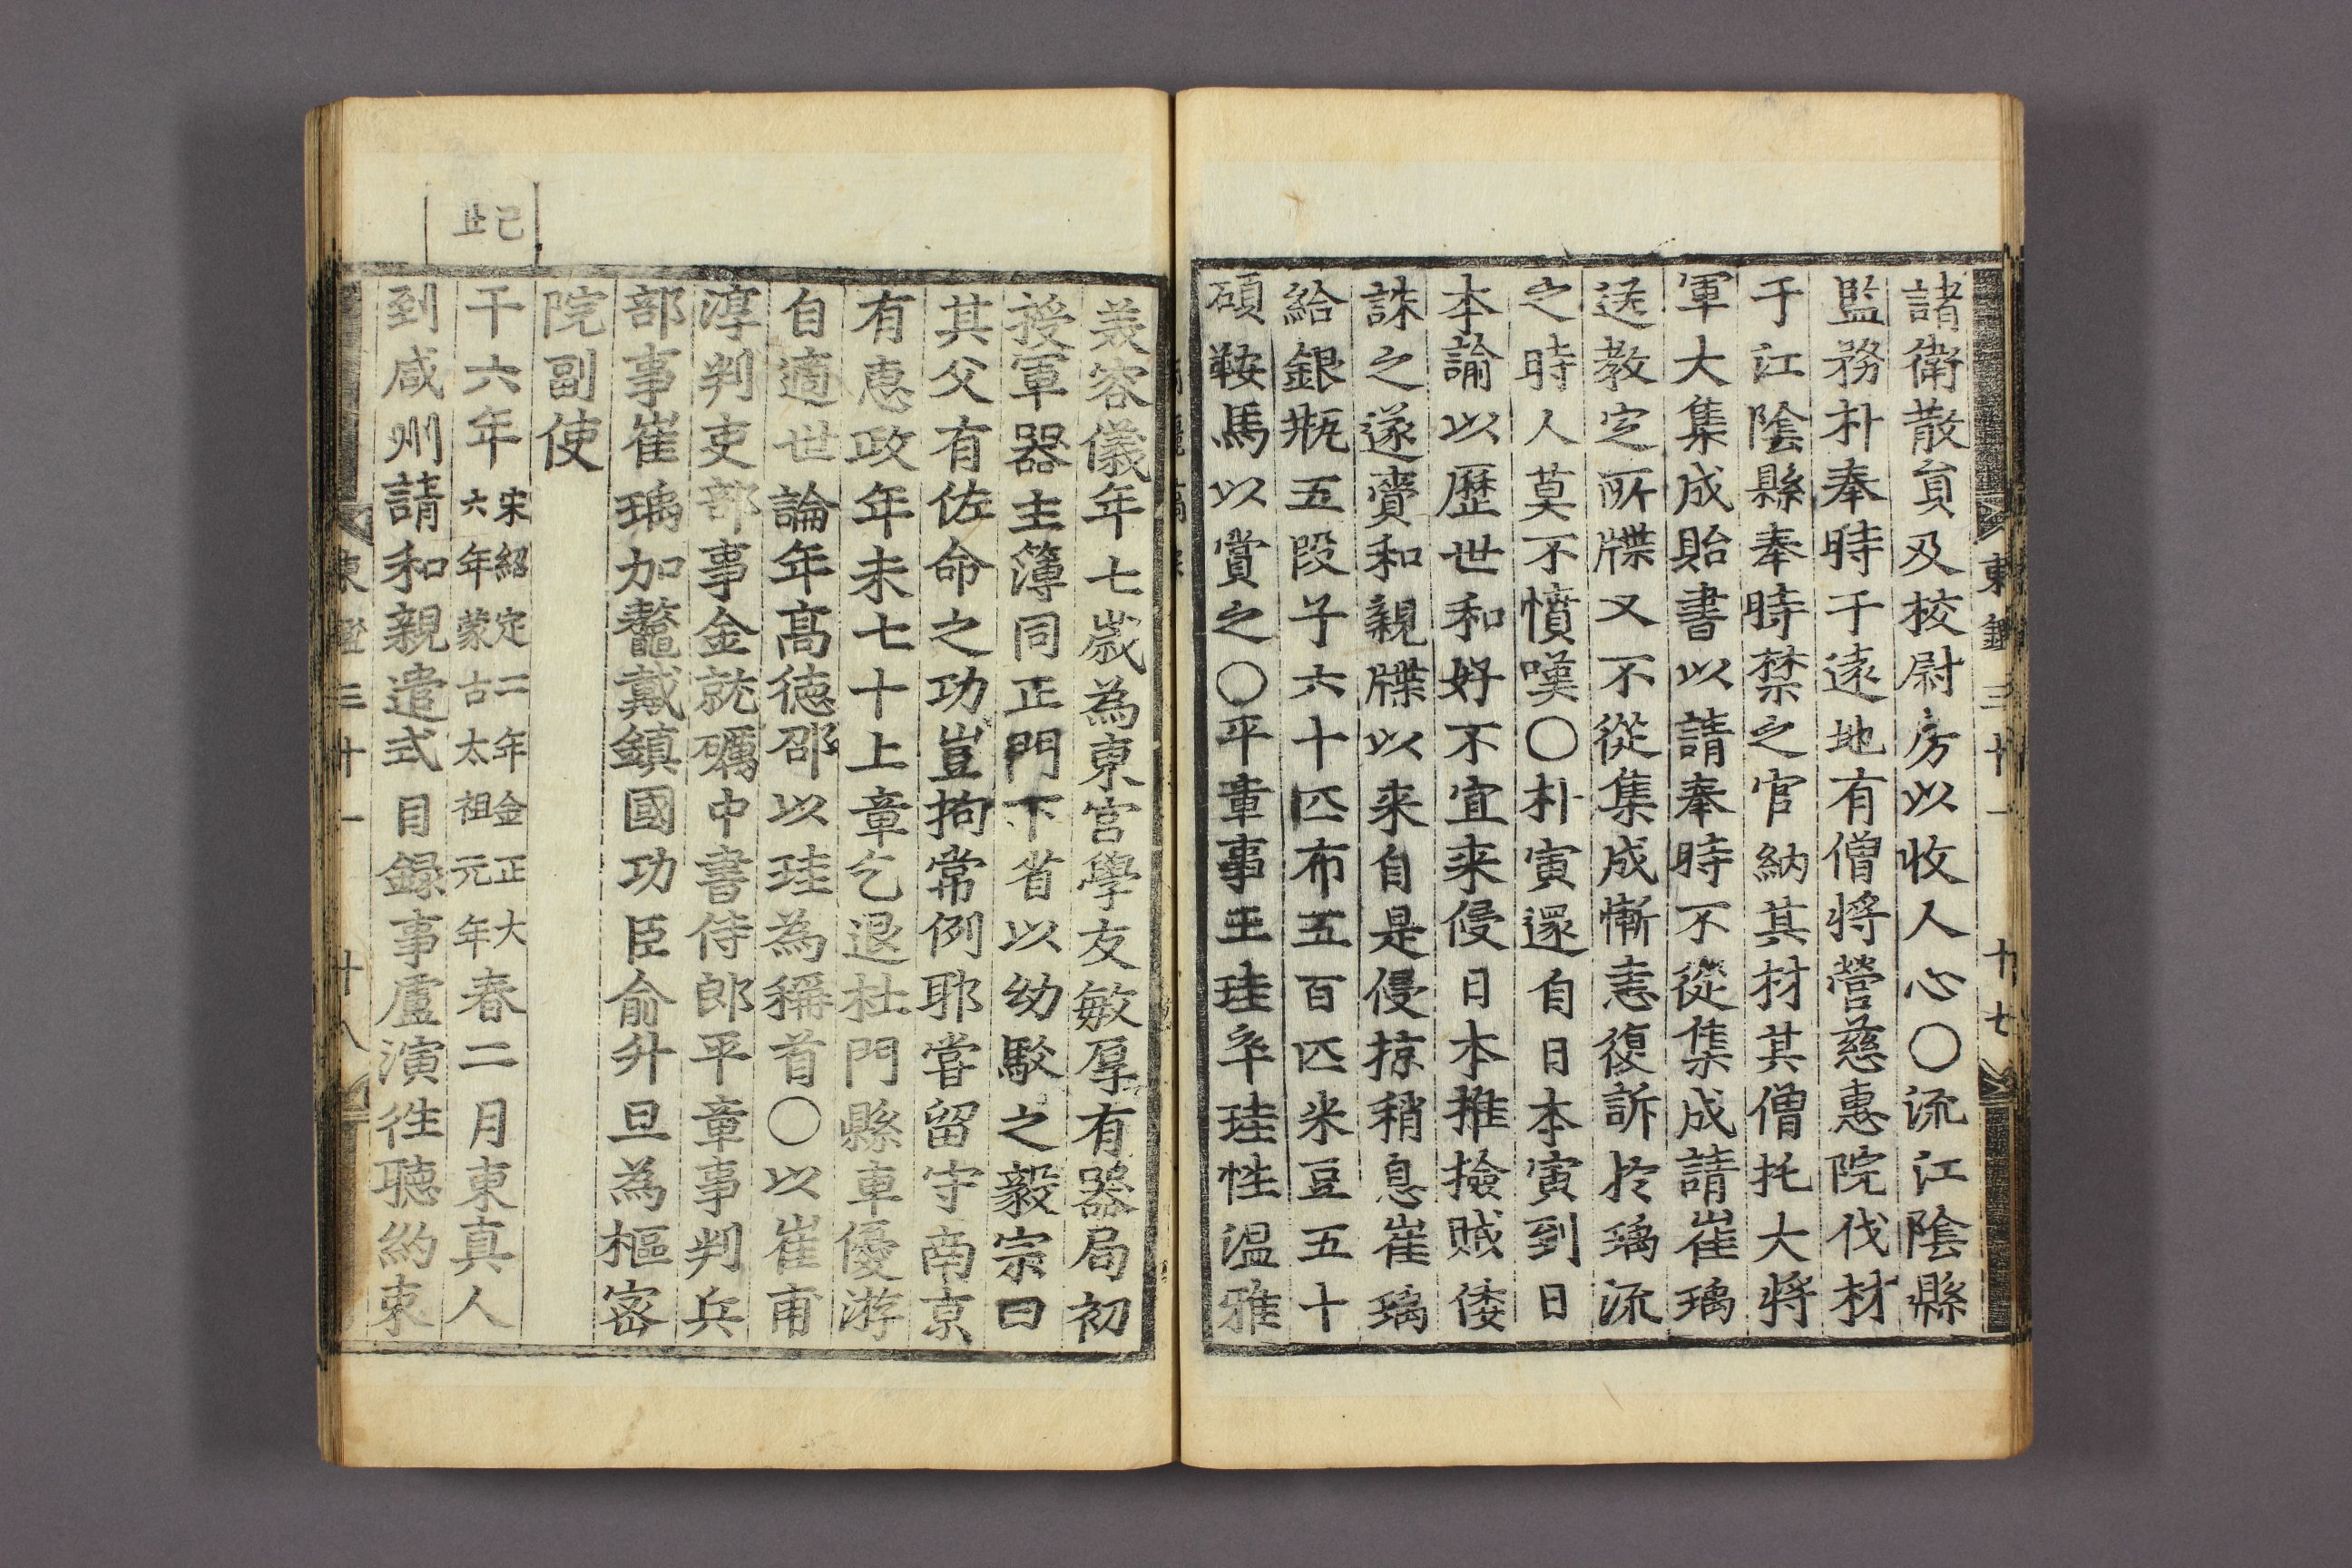 東鑑三十一 十七
諸衛散負及校尉房以收人心〇流江陰縣
監務朴奉時于遠地有僧將營慈惠院伐材
于江陰縣奉時禁之官納其材其僧托大將
軍大集成貽書以請奉時不從集成請崔瑀
送教定所牒又不從集成慚恚復訴於瑀流
之時人莫不憤嘆〇朴寅還自日本寅到日
本諭以歷世和好不宜来侵日本推撿賊倭
誅之遂賫和親牒以来自是侵掠稍息崔瑀
給銀瓶五段子六十匹布五百匹米豆五十
碩鞍馬以賞之〇平章事王珪卒珪性温雅
美容儀年七歲為東宮學友敏厚有器局初
授軍器主簿同正門下省以幼駮之毅宗曰
其父有佐命之功豈拘常例耶嘗留守南京
有惠政年未七十上章乞退杜門縣車優游
自適世論年高德邵以珪為稱首〇以崔甫
淳判吏部事金就礪中書侍郎平章事判兵
部事崔瑀加鼇戴鎮國功臣俞升旦為樞密
院副使
己丑
十六年 宋紹定二年金正大
六年蒙古太祖元年 春二月東真人
到咸州請和親遣式目録事盧演徃聽約束
東鑑三十一 十八